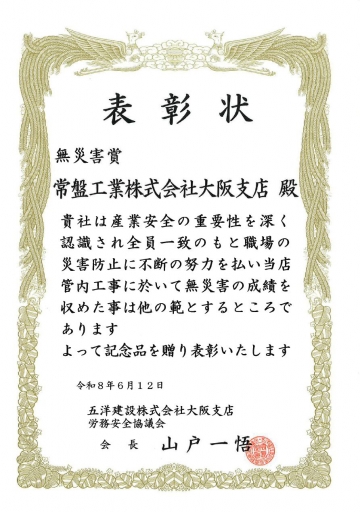 表彰状
無災害賞
常盤工業株式会社大阪支店 殿
貴社は産業安全の重要性を深く
認識され全員一致のもと職場の
災害防止に不断の努力を払い当店
管内工事に於いて無災害の成績を
収めた事は他の範とするところで
あります
よって記念品を贈り表彰いたします
令和８年６月１２日
五洋建設株式会社大阪支店
労務安全協議会
会長 山戸一悟